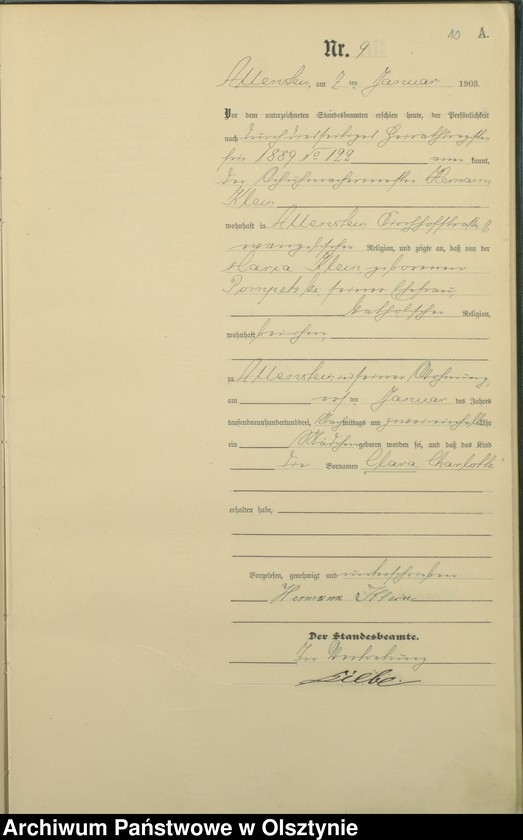 10 A.
Nr. 9
Allenstein, am 7 ten Januar 1903.
Vor dem unterzeichneten Standesbeamten erschien heute, der Persönlichkeit
nach durch diesseitiges Heirathsregister
für 1889 No 122 kannt,
der Schuhmachermeister Hermann
Klein
wohnhaft in Allenstein Kirchhofstraße
evangelischer Religion, und zeigte an, daß von der
Maria Klein geborenen
seiner Ehefrau,
katholischer Religion,
wohnhaft bei ihm,
zu Allenstein in seiner Wohnung,
am ten Januar des Jahres
tausendneunhundertunddrei, Nachmittags um Uhr
ein Mädchen geboren worden sei, und daß das Kind
die Vornamen Clara Charlotte
erhalten habe,
Vorgelesen, genehmigt und unterschrieben
Hermann Klein
Der Standesbeamte.
In Vertretung
Archiwum Państwowe w Olsztynie